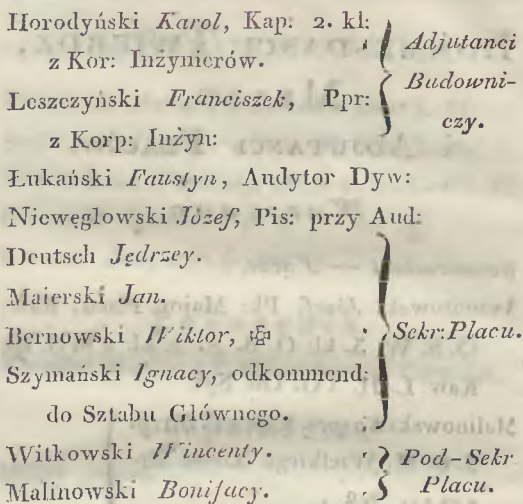 Horodyński Karol, Kap: 2. kl:
z Kor: Inżynierów.
Leszczyński Franciszek, Ppr:
z Korp: Inżyn:
Adjutanci
Budowni-
czy.
Łukański Faustyn, Audytor Dyw:
Niewęglowski Józef, Pis: przy Aud:
Deutsch Jędrzey.
Maierski Jan.
Bernowski Wiktor, ✠
Szymański Ignacy, odkommend:
do Sztabu Głównego.
Sekr: Placu.
Witkowski Wincenty.
Malinowski Bonifacy.
Pod-Sekr
Placu.